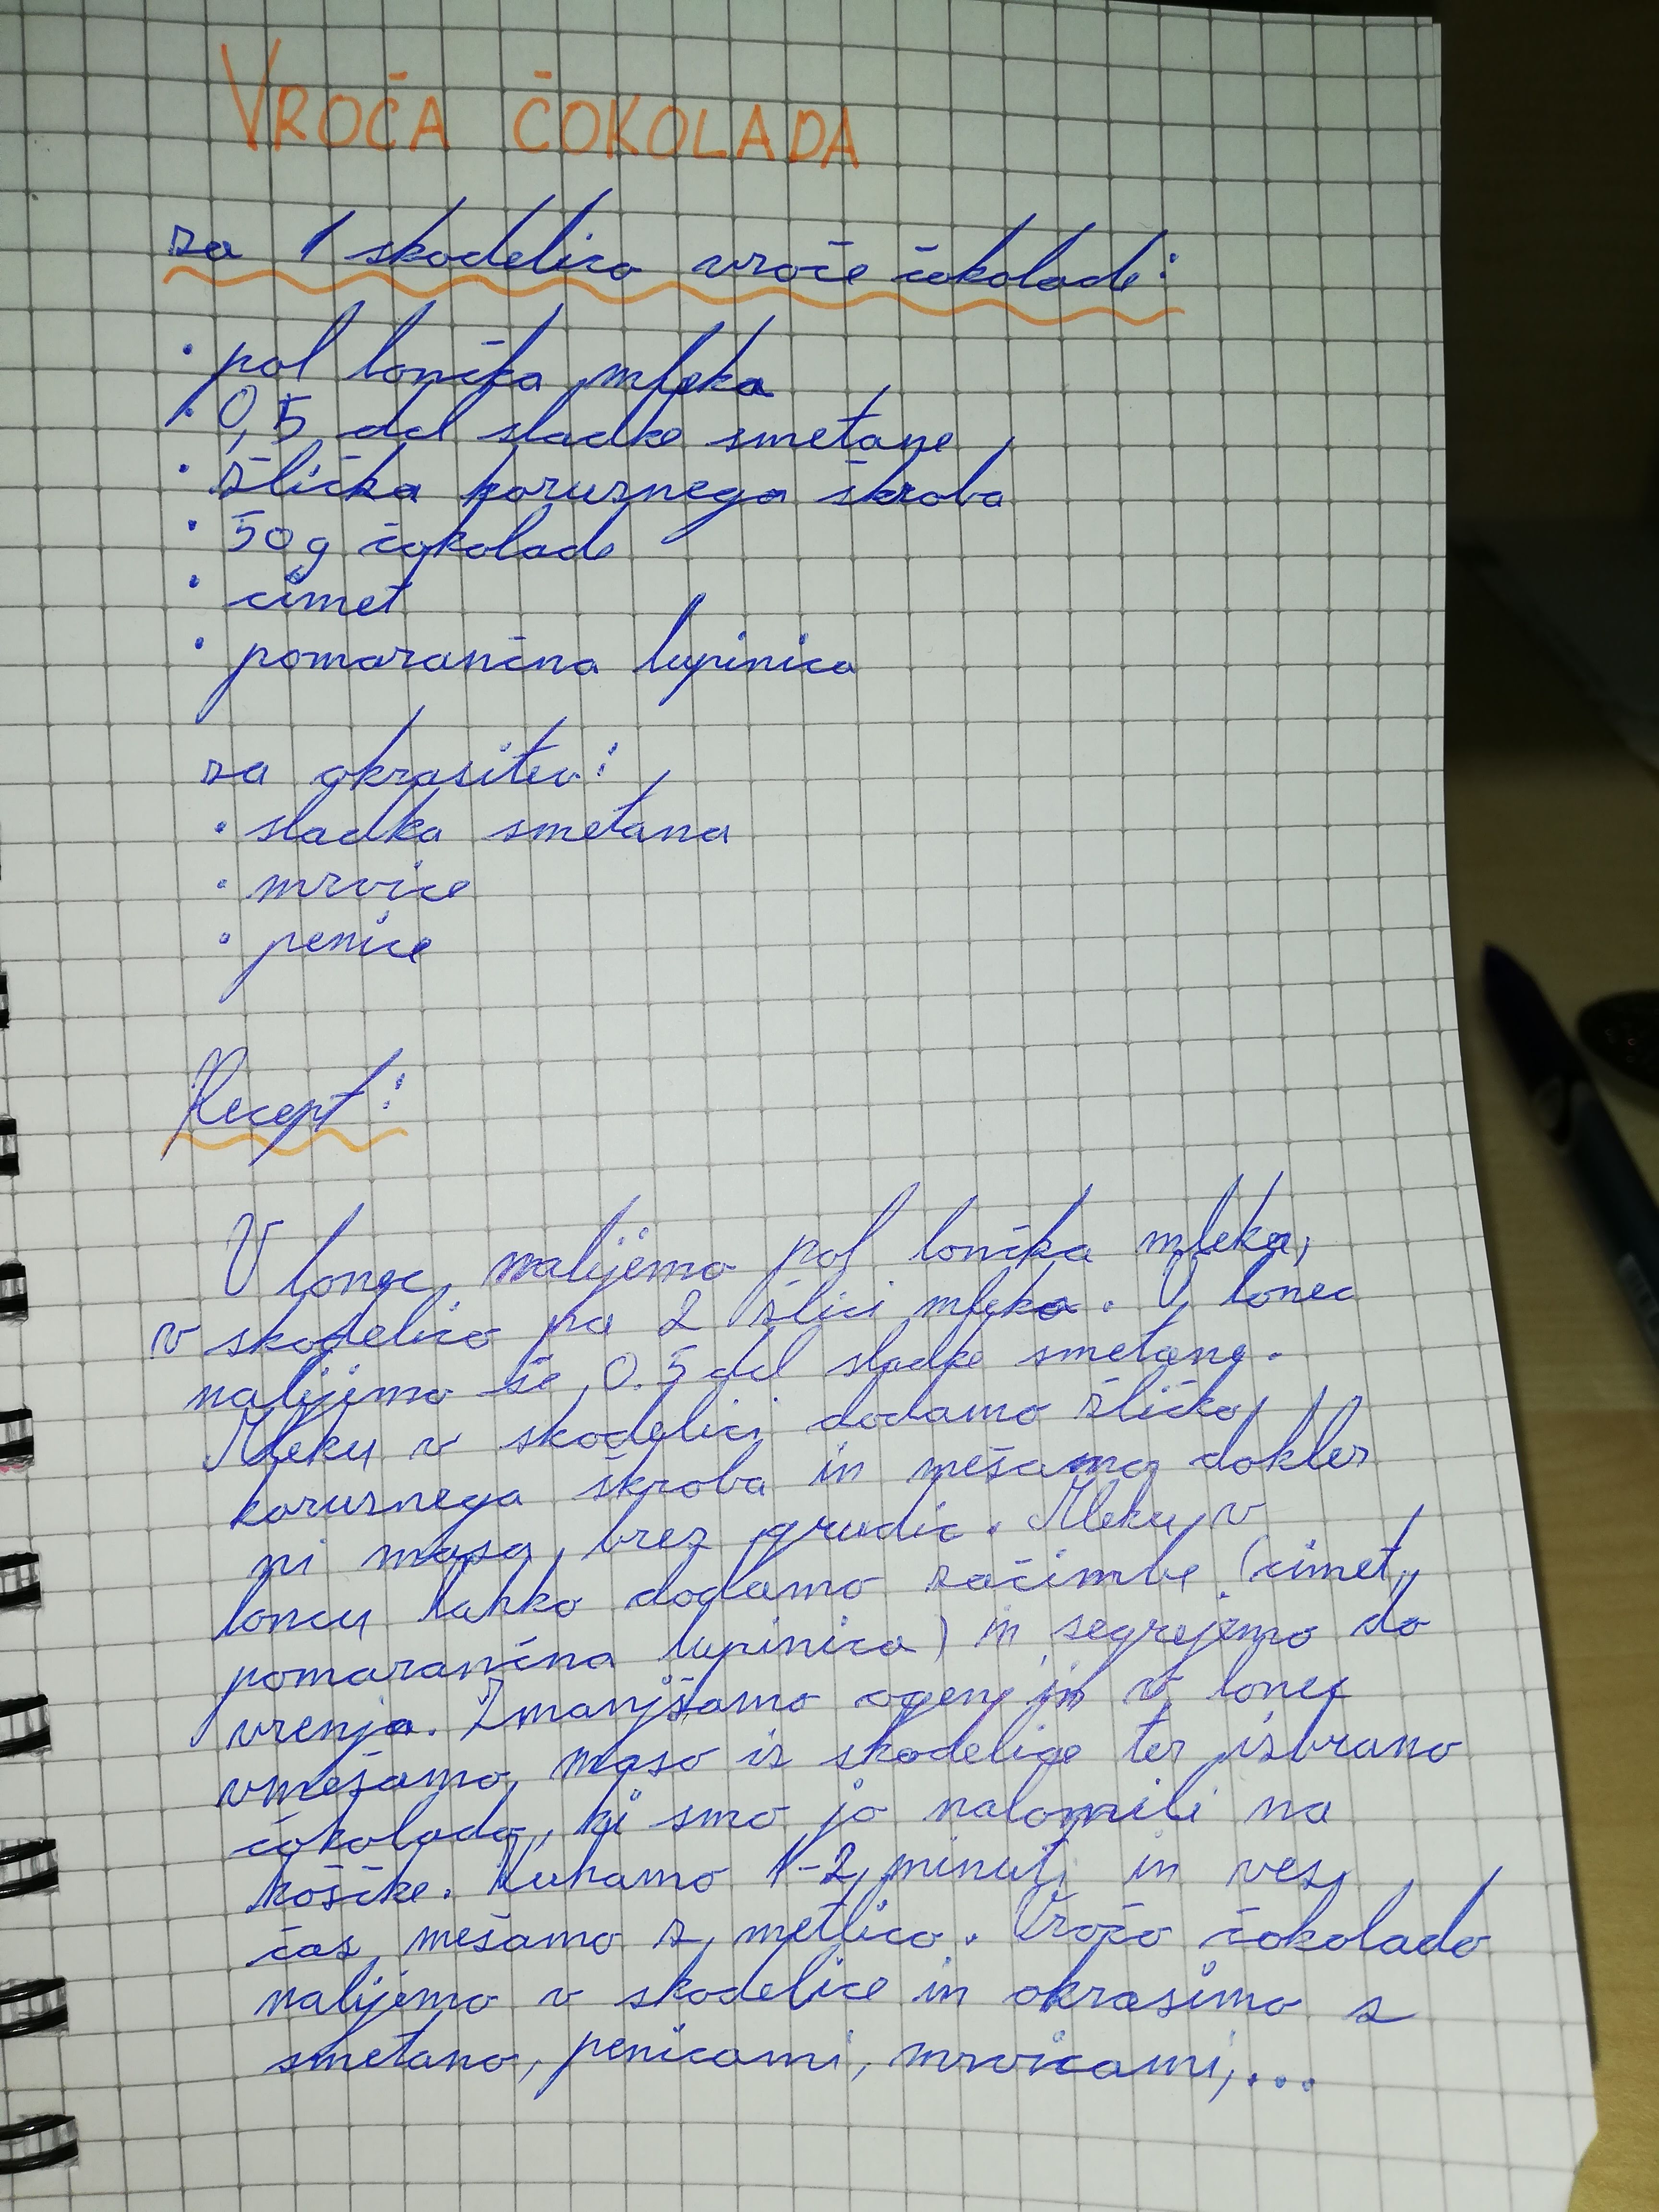 VROČA ČOKOLADA
za 1 skodelico vroče čokolade:
· pol lončka mleka
· 0,5 dcl sladke smetane
· žlička koruznega škroba
· 50g čokolade
· cimet
· pomarančna lupinica
za okrasitev:
· sladka smetana
· mrvice
· penice
Recept:
V lonec nalijemo pol lončka mleka,
v skodelico pa 2 žlici mleka. V lonec
nalijemo še 0.5 dcl sladke smetane.
Mleku v skodelici dodamo žličko
koruznega škroba in mešamo dokler
ni masa brez grudic. Mleku v
loncu lahko dodamo začimbe (cimet,
pomarančna lupinica) in segrejemo do
vrenja. Zmanjšamo ogenj in v lonec
vmešamo maso iz skodelice ter izbrano
čokolado, ki smo jo nalomili na
koščke. Kuhamo 1-2 minuti in ves
čas mešamo z metlico. Vročo čokolado
nalijemo v skodelice in okrasimo s
smetano, penicami, mrvicami,...